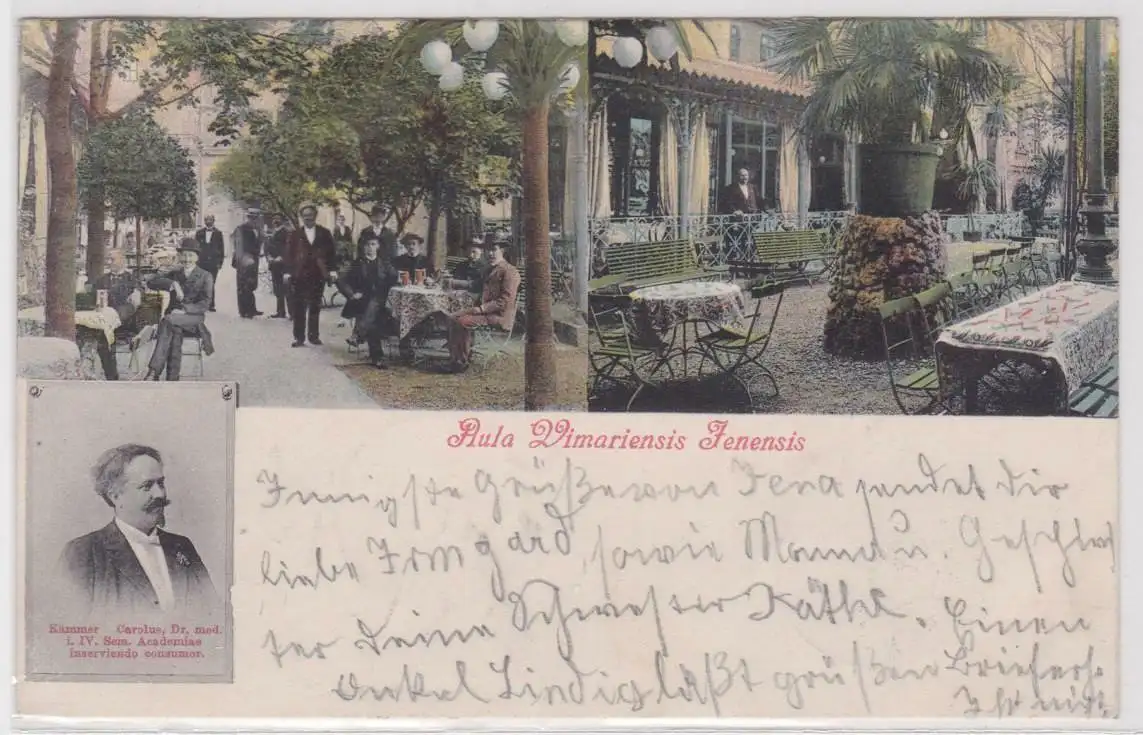 Aula Vimariensis Jenensis
Kämmer Carolus, Dr. med.
i. IV. Sem. Academiae
inserviendo consumor.
Innigste Grüße von Jena sendet dir
liebe Irmgard, sowie Mama u. Geschwis
ter Deine Schwester Käthe. Einen
Onkel Lindig läßt grüßen
Ihr nicht